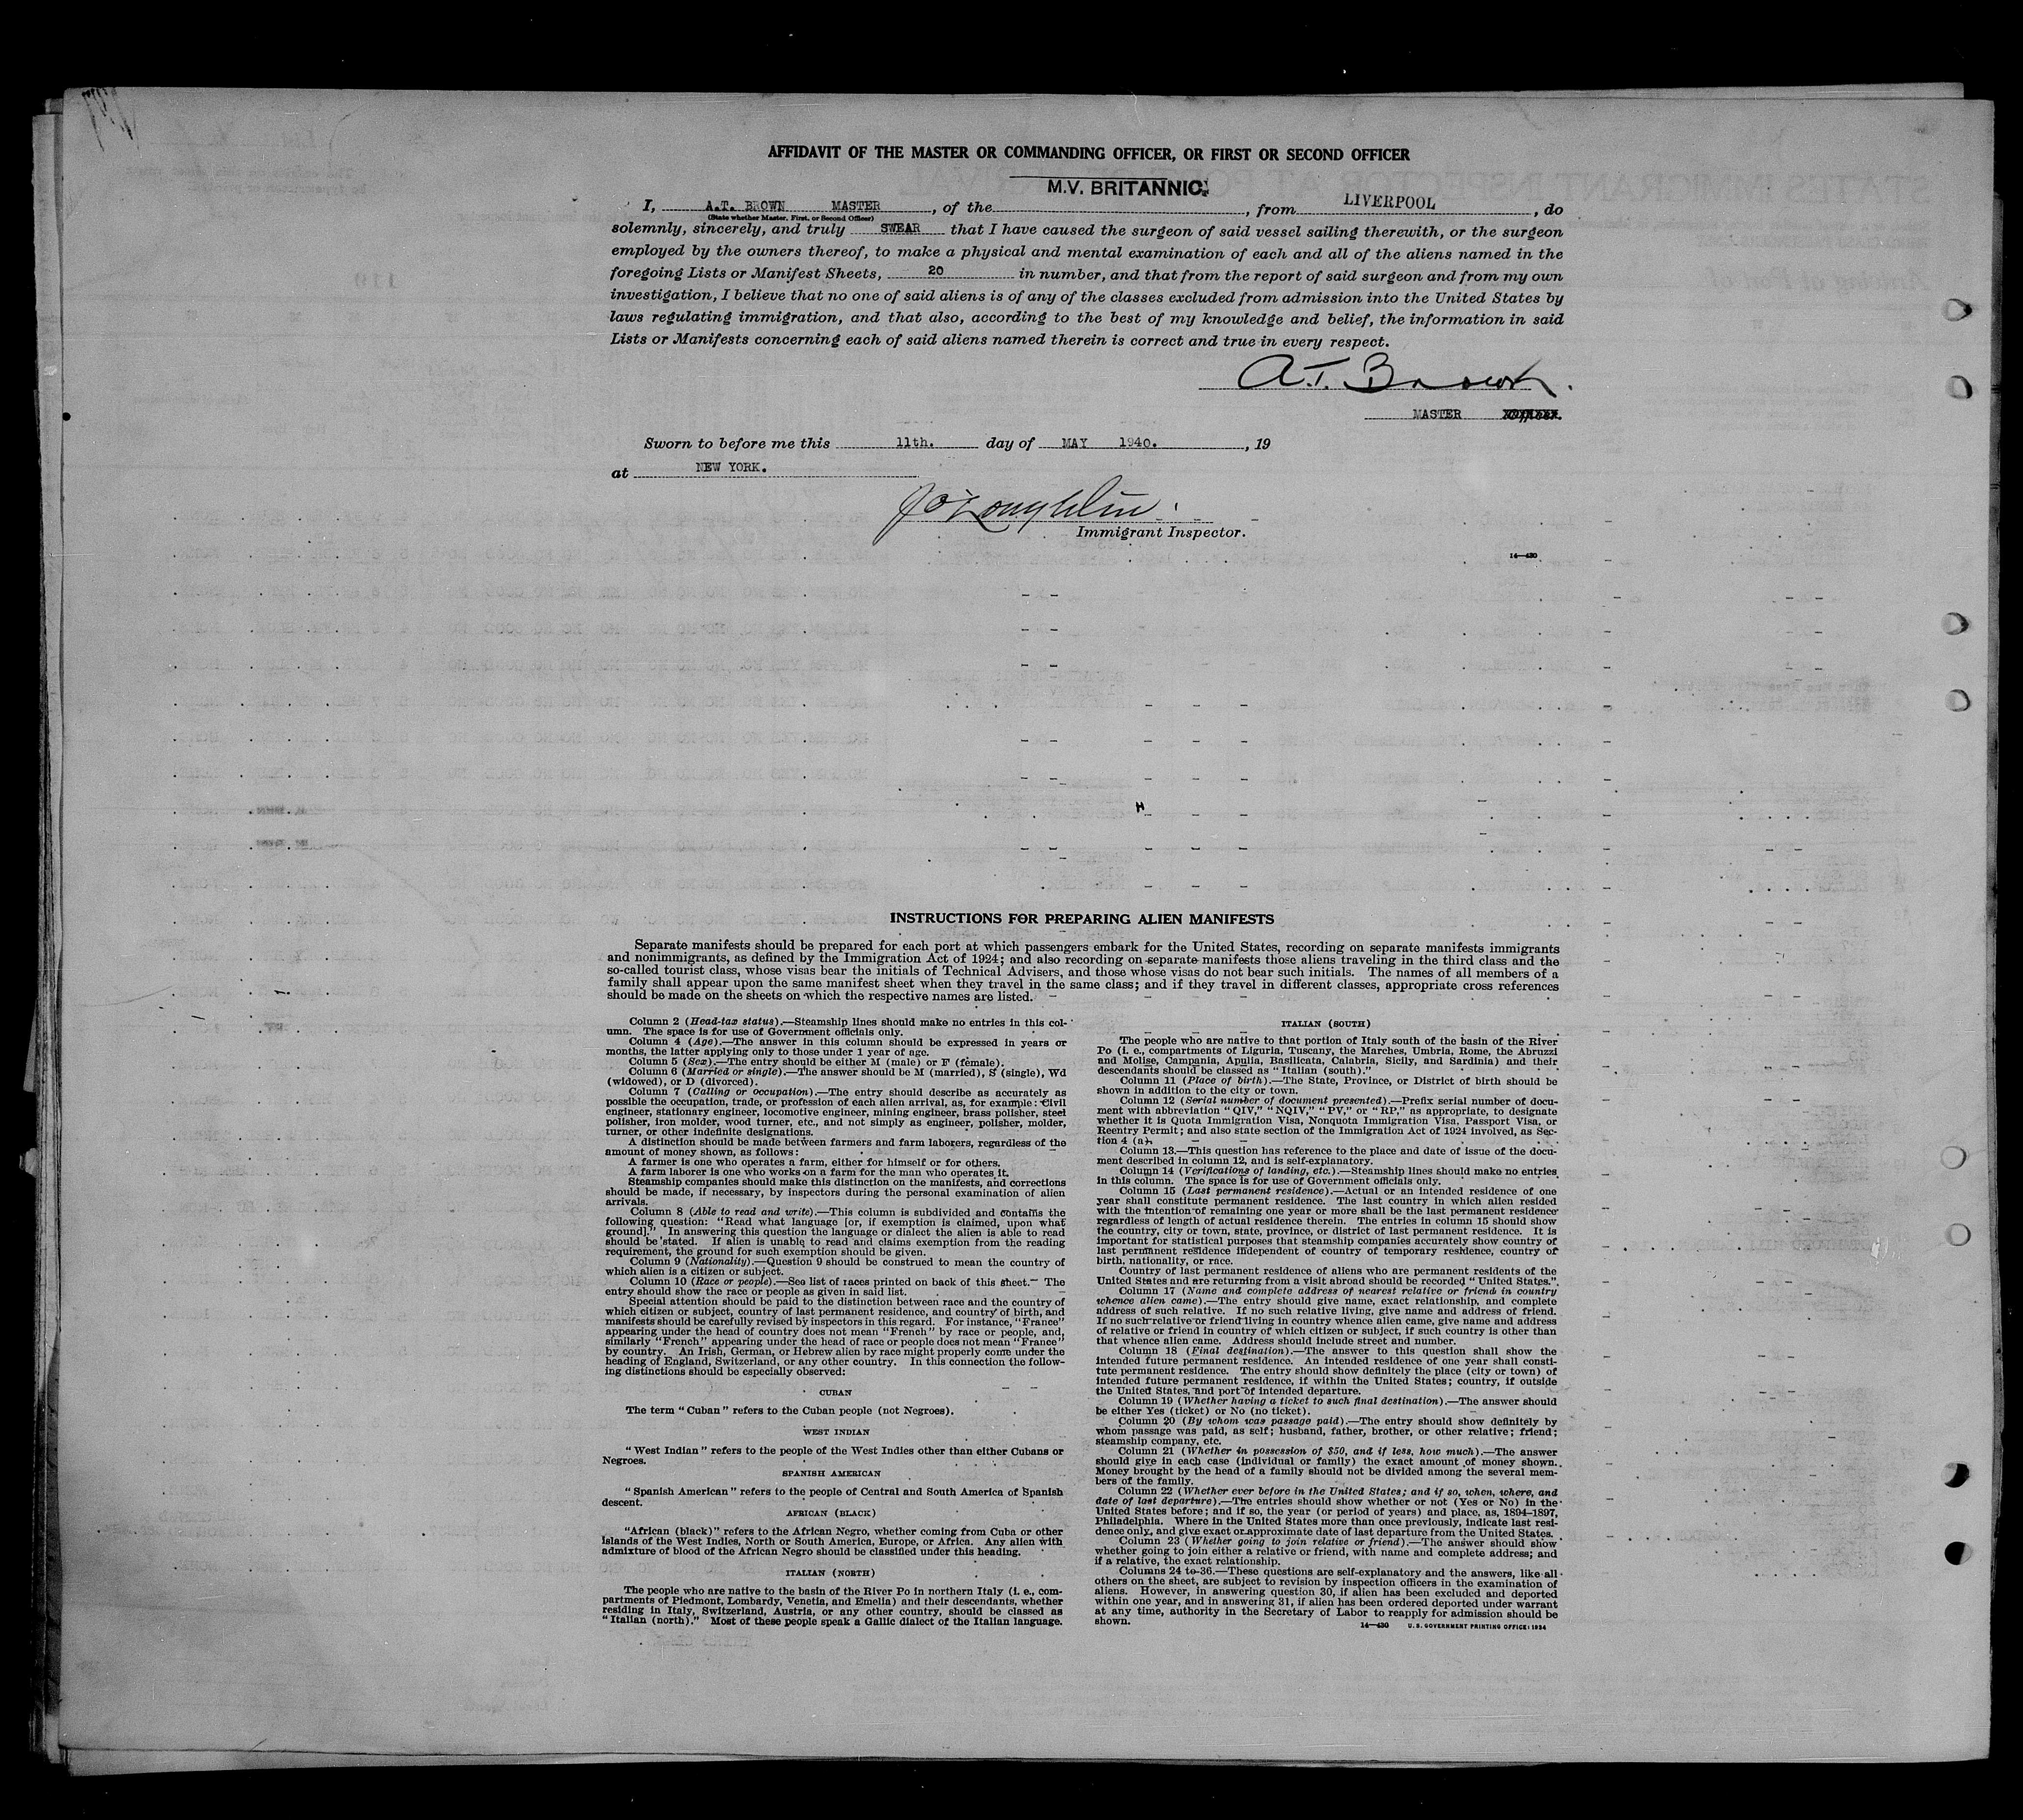 AFFIDAVIT OF THE MASTER OR COMMANDING OFFICER, OR FIRST OR SECOND OFFICER
M.V. BRITANNIC.
I, A.T. BROWN MASTER, of the , from LIVERPOOL, do
(State whether Master, First, or Second Officer)
solemnly, sincerely, and truly SWEAR that I have caused the surgeon of said vessel sailing therewith, or the surgeon
employed by the owners thereof, to make a physical and mental examination of each and all of the aliens named in the
foregoing Lists or Manifest Sheets, 20 in number, and that from the report of said surgeon and from my own
investigation, I believe that no one of said aliens is of any of the classes excluded from admission into the United States by
laws regulating immigration, and that also, according to the best of my knowledge and belief, the information in said
Lists or Manifests concerning each of said aliens named therein is correct and true in every respect.
A.T. Brown.
MASTER
Sworn to before me this 11th. day of MAY 1940. , 19
at NEW YORK.
J O'Loughlin
Immigrant Inspector.
14—430
INSTRUCTIONS FOR PREPARING ALIEN MANIFESTS
Separate manifests should be prepared for each port at which passengers embark for the United States, recording on separate manifests immigrants
and nonimmigrants, as defined by the Immigration Act of 1924; and also recording on separate manifests those aliens traveling in the third class and the
so-called tourist class, whose visas bear the initials of Technical Advisers, and those whose visas do not bear such initials. The names of all members of a
family shall appear upon the same manifest sheet when they travel in the same class; and if they travel in different classes, appropriate cross references
should be made on the sheets on which the respective names are listed.
Column 2 (Head-tax status).—Steamship lines should make no entries in this col-
umn. The space is for use of Government officials only.
Column 4 (Age).—The answer in this column should be expressed in years or
months, the latter applying only to those under 1 year of age.
Column 5 (Sex).—The entry should be either M (male) or F (female).
Column 6 (Married or single).—The answer should be M (married), S (single), Wd
(widowed), or D (divorced).
Column 7 (Calling or occupation).—The entry should describe as accurately as
possible the occupation, trade, or profession of each alien arrival, as, for example: Civil
engineer, stationary engineer, locomotive engineer, mining engineer, brass polisher, steel
polisher, iron molder, wood turner, etc., and not simply as engineer, polisher, molder,
turner, or other indefinite designations.
A distinction should be made between farmers and farm laborers, regardless of the
amount of money shown, as follows:
A farmer is one who operates a farm, either for himself or for others.
A farm laborer is one who works on a farm for the man who operates it.
Steamship companies should make this distinction on the manifests, and corrections
should be made, if necessary, by inspectors during the personal examination of alien
arrivals.
Column 8 (Able to read and write).—This column is subdivided and contains the
following question: "Read what language [or, if exemption is claimed, upon what
ground]." In answering this question the language or dialect the alien is able to read
should be stated. If alien is unable to read and claims exemption from the reading
requirement, the ground for such exemption should be given.
Column 9 (Nationality).—Question 9 should be construed to mean the country of
which alien is a citizen or subject.
Column 10 (Race or people).—See list of races printed on back of this sheet. The
entry should show the race or people as given in said list.
Special attention should be paid to the distinction between race and the country of
which citizen or subject, country of last permanent residence, and country of birth, and
manifests should be carefully revised by inspectors in this regard. For instance, "France"
appearing under the head of country does not mean "French" by race or people, and,
similarly "French" appearing under the head of race or people does not mean "France"
by country. An Irish, German, or Hebrew alien by race might properly come under the
heading of England, Switzerland, or any other country. In this connection the follow-
ing distinctions should be especially observed:
CUBAN
The term "Cuban" refers to the Cuban people (not Negroes).
WEST INDIAN
"West Indian" refers to the people of the West Indies other than either Cubans or
Negroes.
SPANISH AMERICAN
"Spanish American" refers to the people of Central and South America of Spanish
descent.
AFRICAN (BLACK)
"African (black)" refers to the African Negro, whether coming from Cuba or other
islands of the West Indies, North or South America, Europe, or Africa. Any alien with
admixture of blood of the African Negro should be classified under this heading.
ITALIAN (NORTH)
The people who are native to the basin of the River Po in northern Italy (i. e., com-
partments of Piedmont, Lombardy, Venetia, and Emelia) and their descendants, whether
residing in Italy, Switzerland, Austria, or any other country, should be classed as
"Italian (north)." Most of these people speak a Gallic dialect of the Italian language.
ITALIAN (SOUTH)
The people who are native to that portion of Italy south of the basin of the River
Po (i. e., compartments of Liguria, Tuscany, the Marches, Umbria, Rome, the Abruzzi
and Molise, Campania, Apulia, Basilicata, Calabria, Sicily, and Sardinia) and their
descendants should be classed as "Italian (south)."
Column 11 (Place of birth).—The State, Province, or District of birth should be
shown in addition to the city or town.
Column 12 (Serial number of document presented).—Prefix serial number of docu-
ment with abbreviation "QIV," "NQIV," "PV," or "RP," as appropriate, to designate
whether it is Quota Immigration Visa, Nonquota Immigration Visa, Passport Visa, or
Reentry Permit; and also state section of the Immigration Act of 1924 involved, as Sec-
tion 4 (a).
Column 13.—This question has reference to the place and date of issue of the docu-
ment described in column 12, and is self-explanatory.
Column 14 (Verifications of landing, etc.).—Steamship lines should make no entries
in this column. The space is for use of Government officials only.
Column 15 (Last permanent residence).—Actual or an intended residence of one
year shall constitute permanent residence. The last country in which alien resided
with the intention of remaining one year or more shall be the last permanent residence
regardless of length of actual residence therein. The entries in column 15 should show
the country, city or town, state, province, or district of last permanent residence. It is
important for statistical purposes that steamship companies accurately show country of
last permanent residence independent of country of temporary residence, country of
birth, nationality, or race.
Country of last permanent residence of aliens who are permanent residents of the
United States and are returning from a visit abroad should be recorded "United States."
Column 17 (Name and complete address of nearest relative or friend in country
whence alien came).—The entry should give name, exact relationship, and complete
address of such relative. If no such relative living, give name and address of friend.
If no such relative or friend living in country whence alien came, give name and address
of relative or friend in country of which citizen or subject, if such country is other than
that whence alien came. Address should include street and number.
Column 18 (Final destination).—The answer to this question shall show the
intended future permanent residence. An intended residence of one year shall consti-
tute permanent residence. The entry should show definitely the place (city or town) of
intended future permanent residence, if within the United States; country, if outside
the United States, and port of intended departure.
Column 19 (Whether having a ticket to such final destination).—The answer should
be either Yes (ticket) or No (no ticket).
Column 20 (By whom was passage paid).—The entry should show definitely by
whom passage was paid, as self; husband, father, brother, or other relative; friend;
steamship company, etc.
Column 21 (Whether in possession of $50, and if less, how much).—The answer
should give in each case (individual or family) the exact amount of money shown.
Money brought by the head of a family should not be divided among the several mem-
bers of the family.
Column 22 (Whether ever before in the United States; and if so, when, where, and
date of last departure).—The entries should show whether or not (Yes or No) in the
United States before; and if so, the year (or period of years) and place, as, 1894–1897,
Philadelphia. Where in the United States more than once previously, indicate last resi-
dence only, and give exact or approximate date of last departure from the United States.
Column 23 (Whether going to join relative or friend).—The answer should show
whether going to join either a relative or friend, with name and complete address; and
if a relative, the exact relationship.
Columns 24 to 36.—These questions are self-explanatory and the answers, like all
others on the sheet, are subject to revision by inspection officers in the examination of
aliens. However, in answering question 30, if alien has been excluded and deported
within one year, and in answering 31, if alien has been ordered deported under warrant
at any time, authority in the Secretary of Labor to reapply for admission should be
shown.
14—430 U. S. GOVERNMENT PRINTING OFFICE: 1934